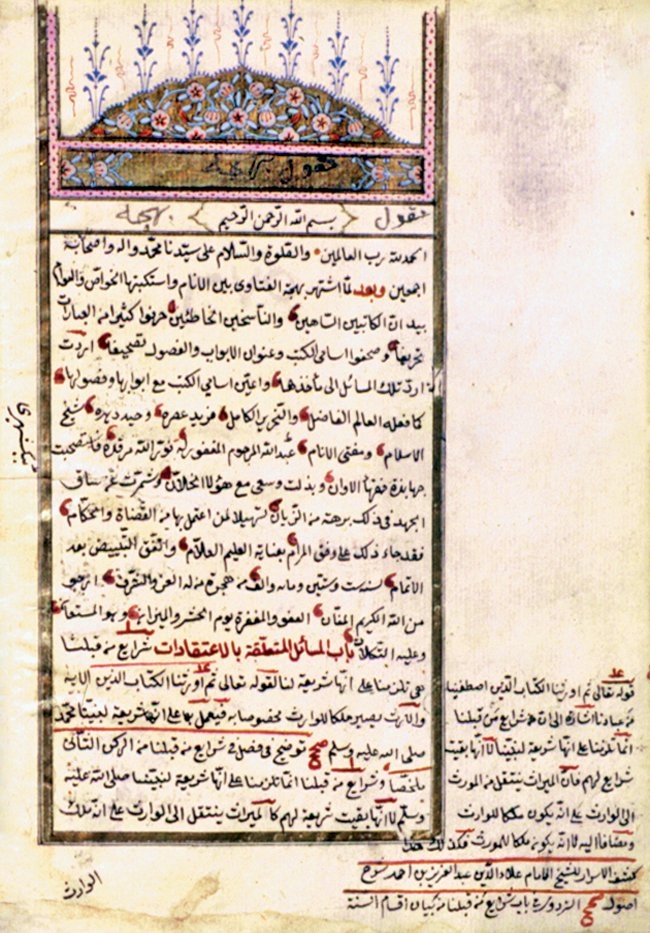 نقول بهجه
نقول بسم الله الرحمن الرحيم بهجه
الحمد لله رب العالمين والصلوة والسلام على سيدنا محمد واله واصحابه
اجمعين وبعد لما اشتهر بهجة الفتاوى بين الانام واستكتبها الخواص والعوام
بيد ان الكاتبين الساهين والناسخين الخاطئين حرفوا كثيرا من العبارات
تحريفا وصحفوا اسامى الكتب وعنوان الابواب والفصول تصحيفا اردت
ان ارد تلك المسائل الى مأخذها واعين اسامى الكتب مع ابوابها وفصولها
كما فعله العالم الفاضل والتحرير الكامل فريد عصره وحيد دهره شيخ
الاسلام ومفتى الانام عبد الله المرحوم المغفور له نور الله مرقده فاستصحبت
جهابذة فقهاء الاوان وبذلت وسعى مع هؤلاء الخلان وشمرت عن ساق
الجهد فى ذلك برهة من الزمان تسهيلا لمن اعتمل بها من القضاة والحكام
فقد جاء ذلك على وفق المرام بعناية العليم العلام واتفق التبييض بعد
الاتمام لسنة ست وستين ومائة والف من هجرة من له العز والشرف ارجو
من الله الكريم المنان العفو والمغفرة يوم الحشر والميزان وهو المستعان
وعليه التكلان باب المسائل المتعلقة بالاعتقادات شرايع من قبلنا
هى تلزمنا على انها شريعة لنا لقوله تعالى ثم اورثنا الكتاب الذين الاية
والارث يصير ملكا للوارث مخصوصا به فيعمل بها على انها شريعة لنبينا محمد
صلى الله عليه وسلم صح توضيح فى فصل فى شرايع من قبلنا من الركن الثانى
ملخصا وشرايع من قبلنا انما تلزمنا على انها شريعة لنبينا صلى الله عليه
وسلم لا انها بقيت شريعة لهم كالميراث ينتقل الى الوارث على انه ملك
الوارث
قوله تعالى ثم اورثنا الكتاب الذين اصطفينا
من عبادنا اشارة الى ان شرايع من قبلنا
انما تلزمنا على انها شريعة لنبينا لا انها بقيت
شرايع لهم فان الميراث ينتقل من المورث
الى الوارث على انه يكون ملكا للوارث
ومضافا اليه لا انه يكون ملكا للمورث فكذلك هذا
كشف الاسرار للشيخ الامام علاء الدين عبد العزيز بن احمد شرح
اصول البزدوى باب شرايع من قبلنا من بيان اقسام السنة